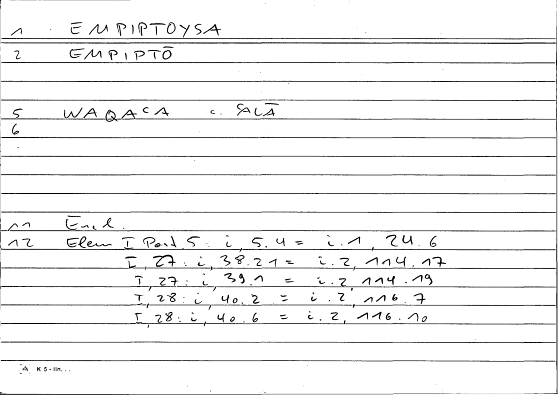 1 EMPIPTOYSA
2 EMPIPTŌ
5 WAQACA c. SALĀ
6
11 Eucl.
12 Elem I Post 5 : i, 5.4 = i.1, 24.6
I, 27 : i, 38.21 = i.2, 114.17
I, 27 : i, 39.1 = i.2, 114.19
I, 28 : i, 40.2 = i.2, 116.7
I, 28 : i, 40.6 = i.2, 116.10
K 5 - lin. . .